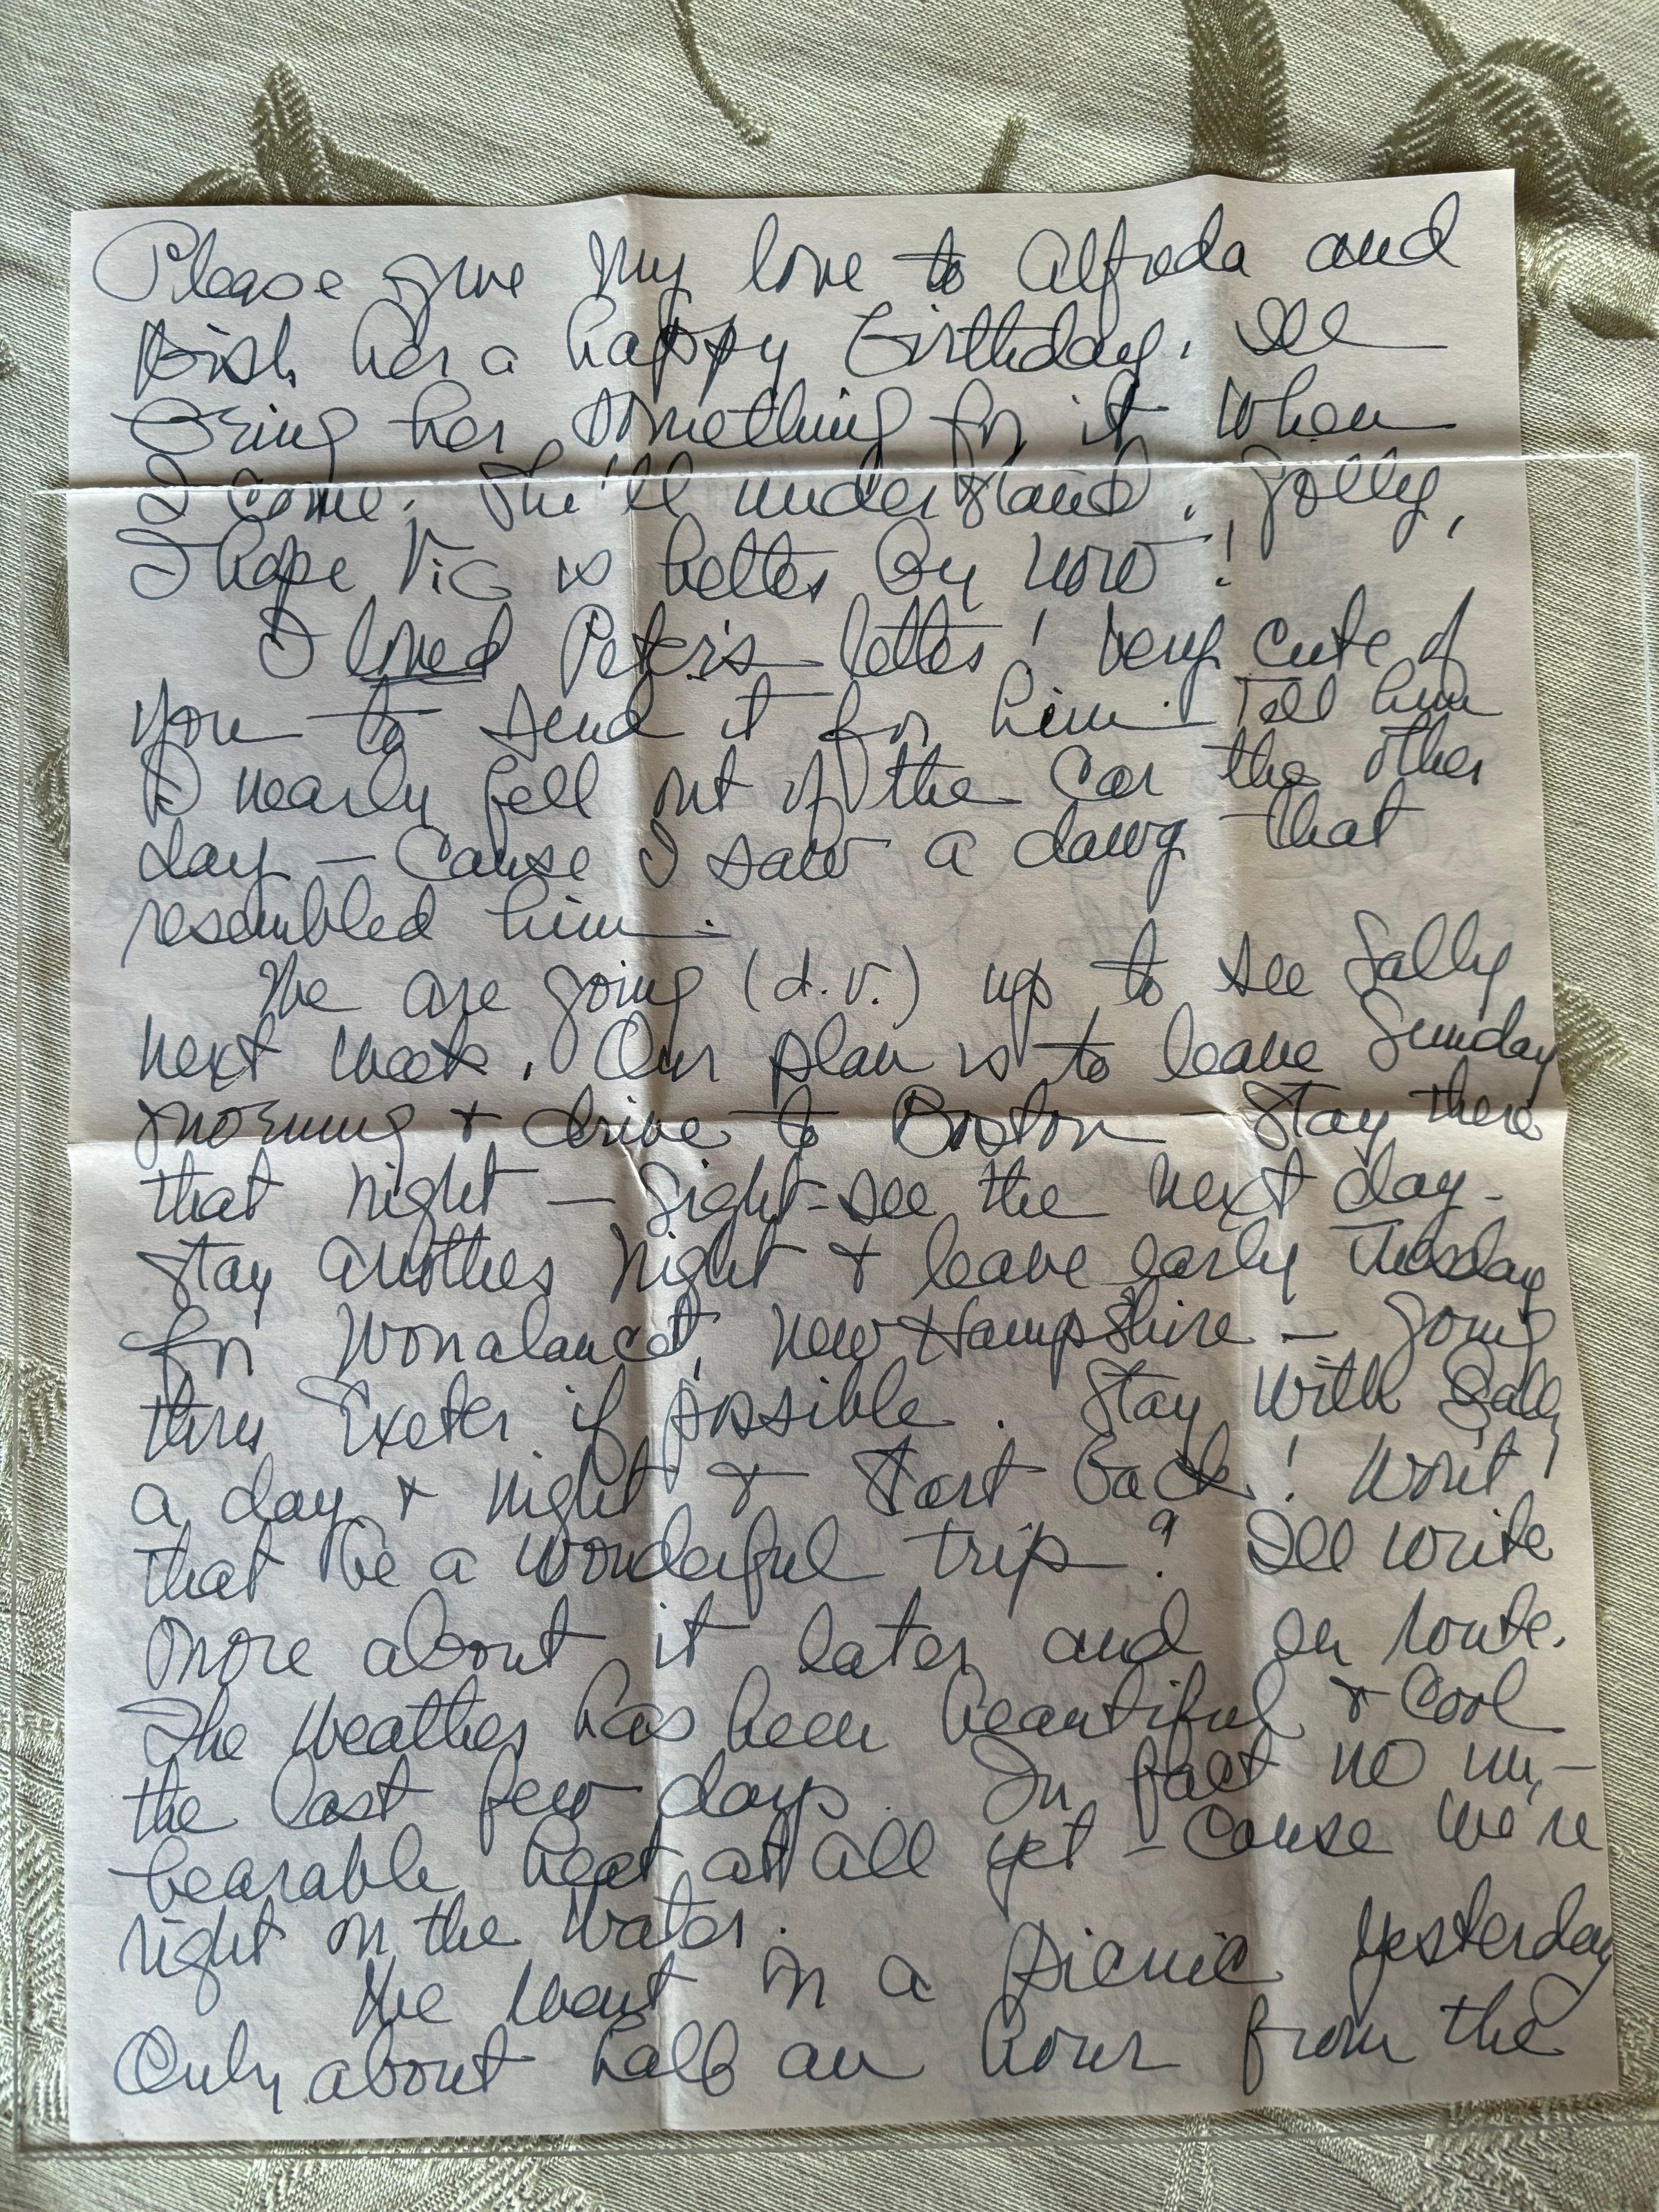 Please give my love to Alfreda and
wish her a happy birthday. I'll
bring her something for it when
I come. She'll understand. Golly,
I hope Vic is better by now!
I loved Peter's letter! Very cute of
you to send it for him. Tell him
I nearly fell out of the car the other
day — cause I saw a dawg that
resembled him.
We are going (d.v.) up to see Sally
next week. Our plan is to leave Sunday
morning + drive to Boston - Stay there
that night — Sight-see the next day -
stay another night + leave early Tuesday
for Wonalancet, New Hampshire — going
thru Exeter if possible. Stay with Sally
a day + night + start back! Won't
that be a wonderful trip? I'll write
more about it later and en route.
The weather has been beautiful + cool
the last few days. In fact no un-
bearable heat at all yet - cause we're
right on the water.
We went on a picnic yesterday
Only about half an hour from the